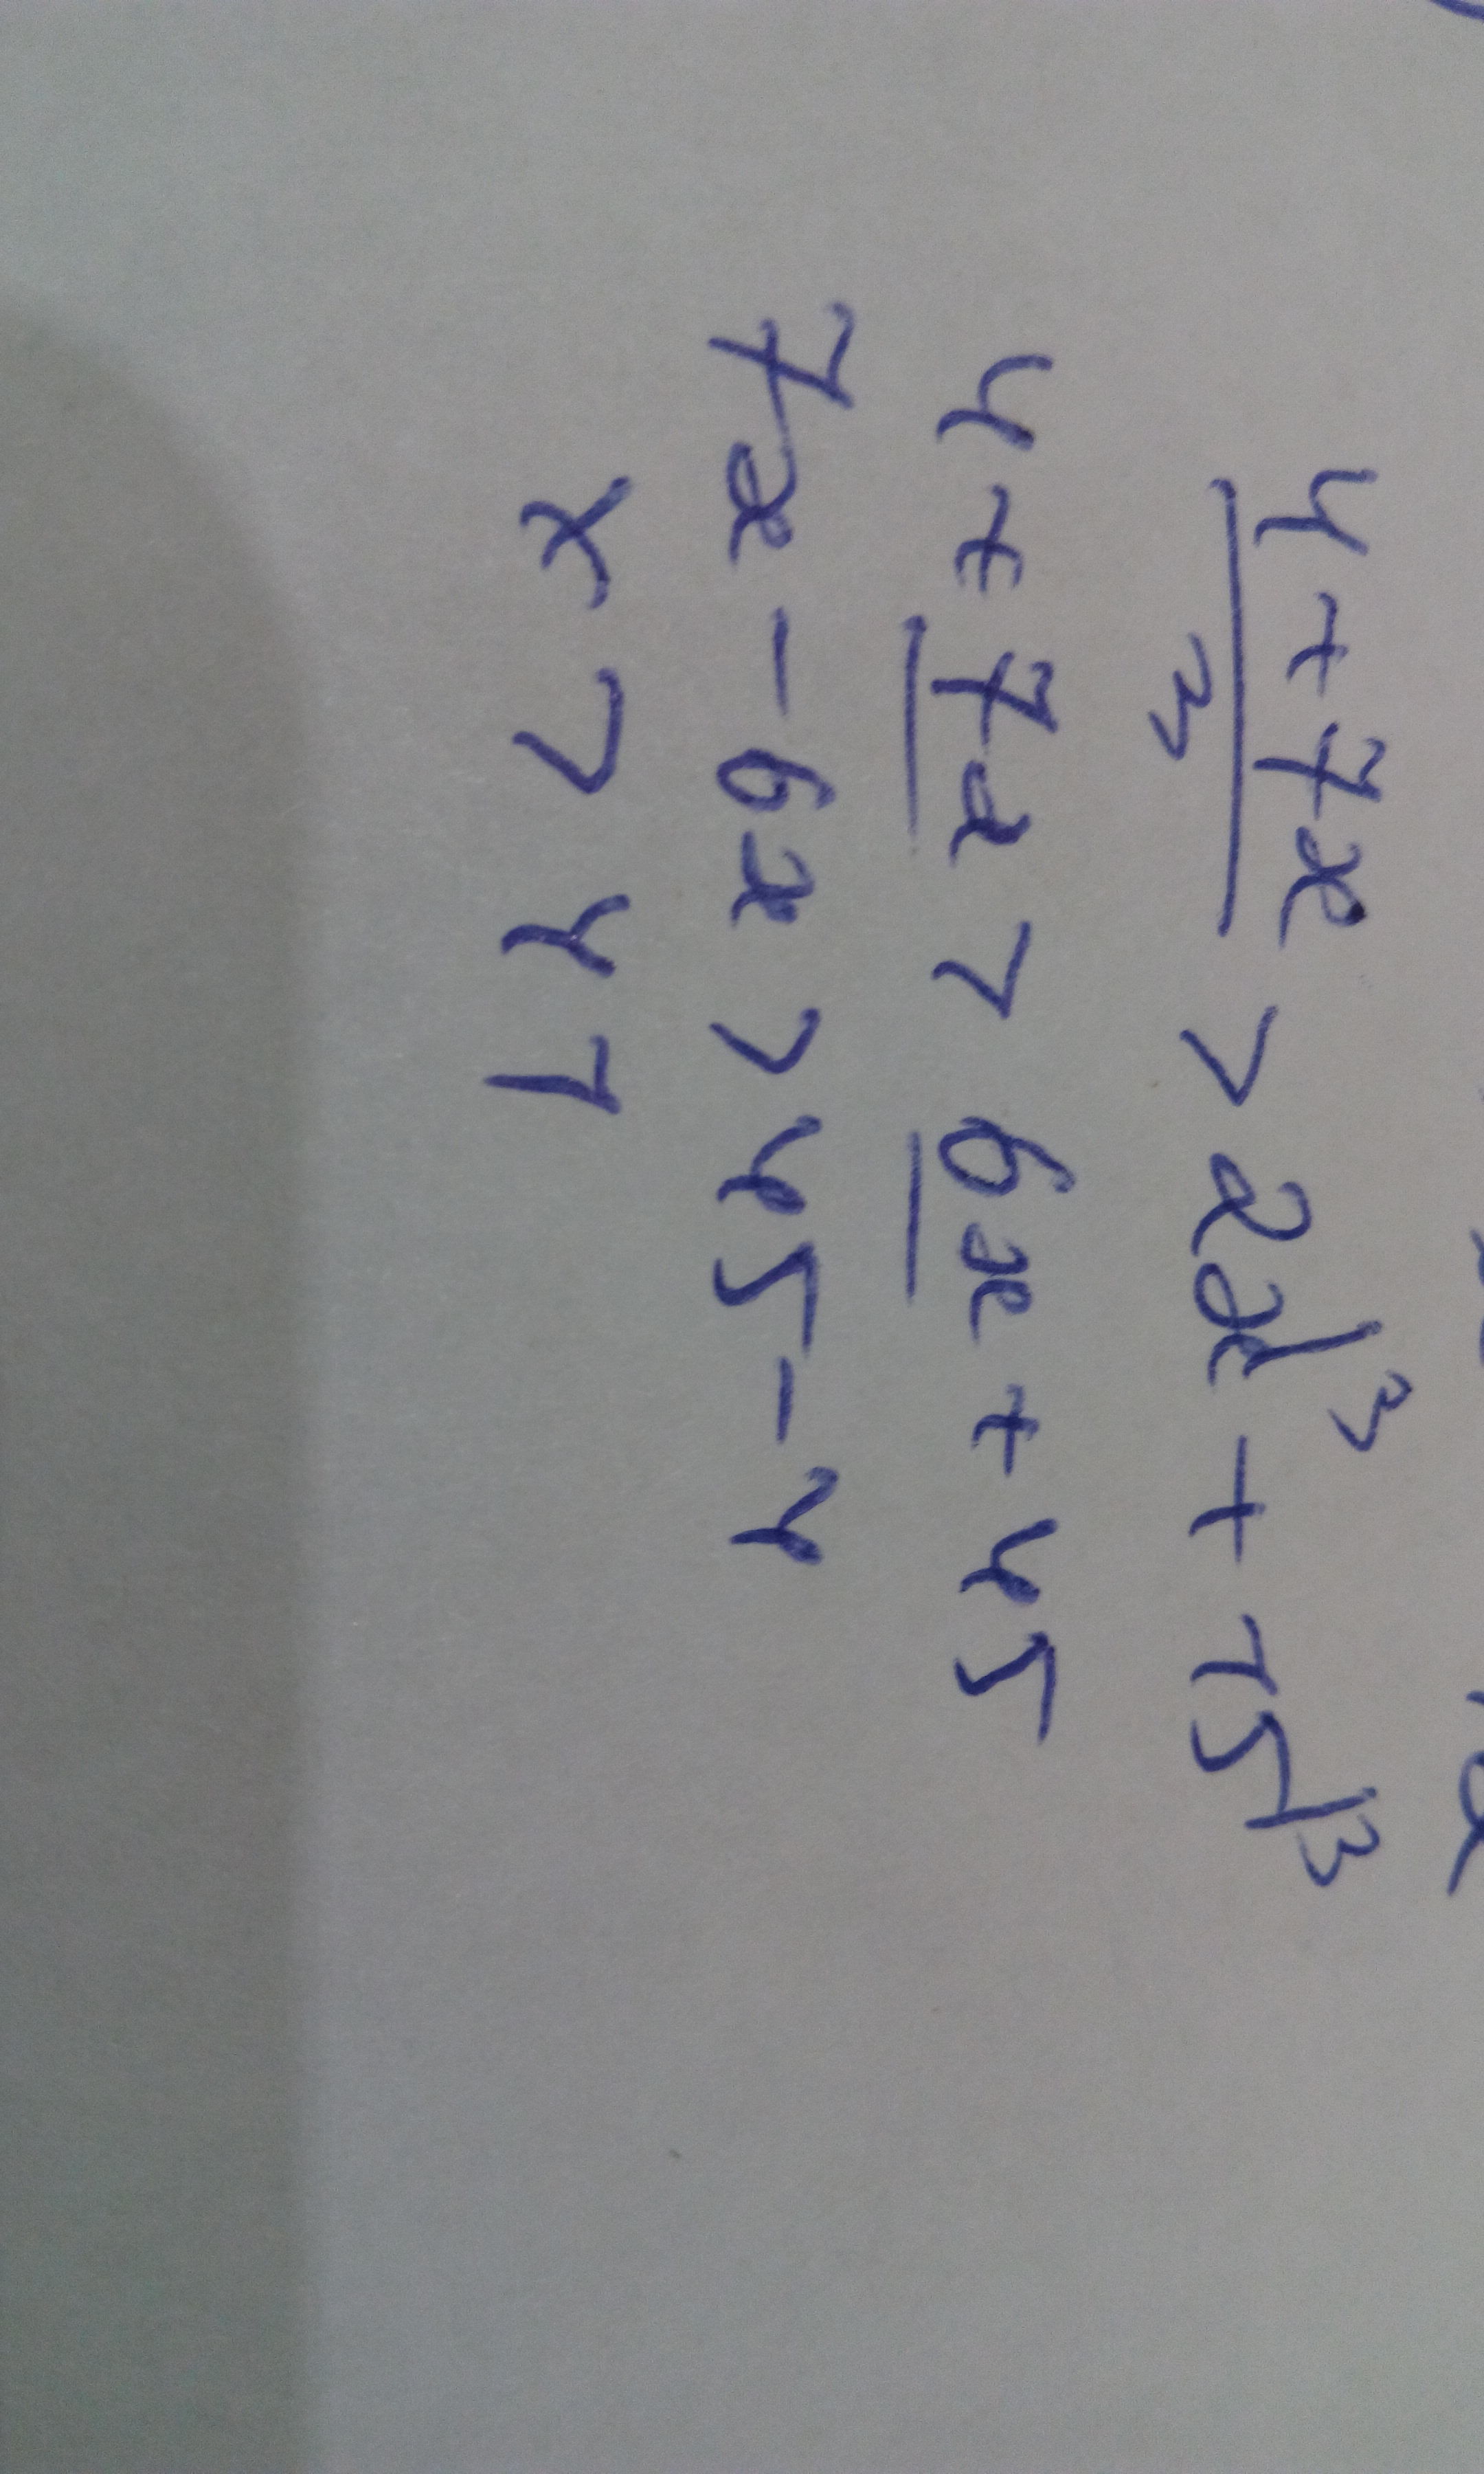 4 + 7x / 3 > 2x |3 + 15 |3
4 + 7x > 6x + 45
7x - 6x > 45 - 4
x > 41